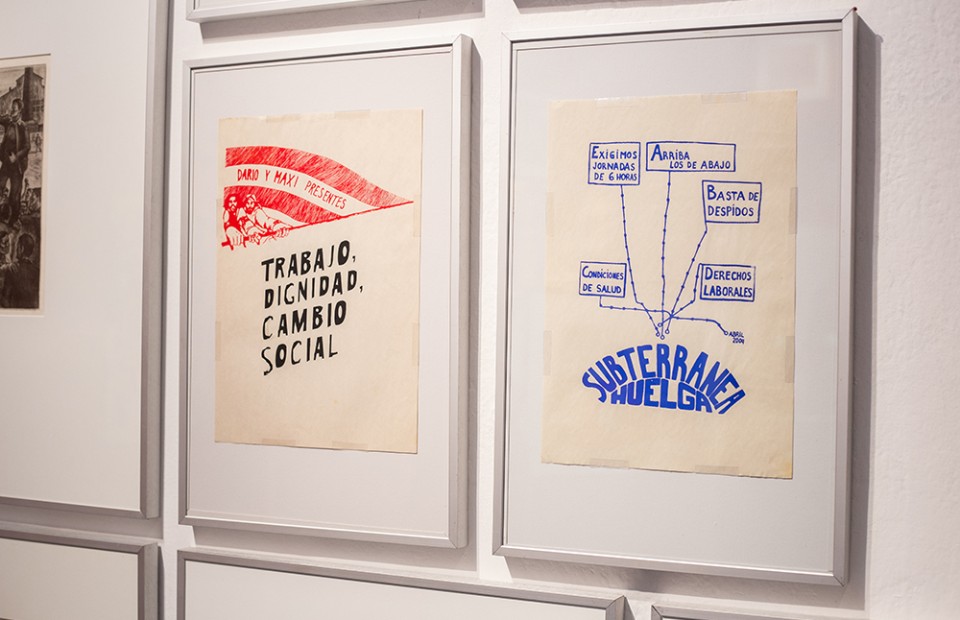 DARIO Y MAXI PRESENTES
TRABAJO,
DIGNIDAD,
CAMBIO
SOCIAL
EXIGIMOS
JORNADAS
DE 6 HORAS
ARRIBA
LOS DE ABAJO
BASTA DE
DESPIDOS
CONDICIONES
DE SALUD
DERECHOS
LABORALES
ABRIL
2004
SUBTERRANEA
HUELGA